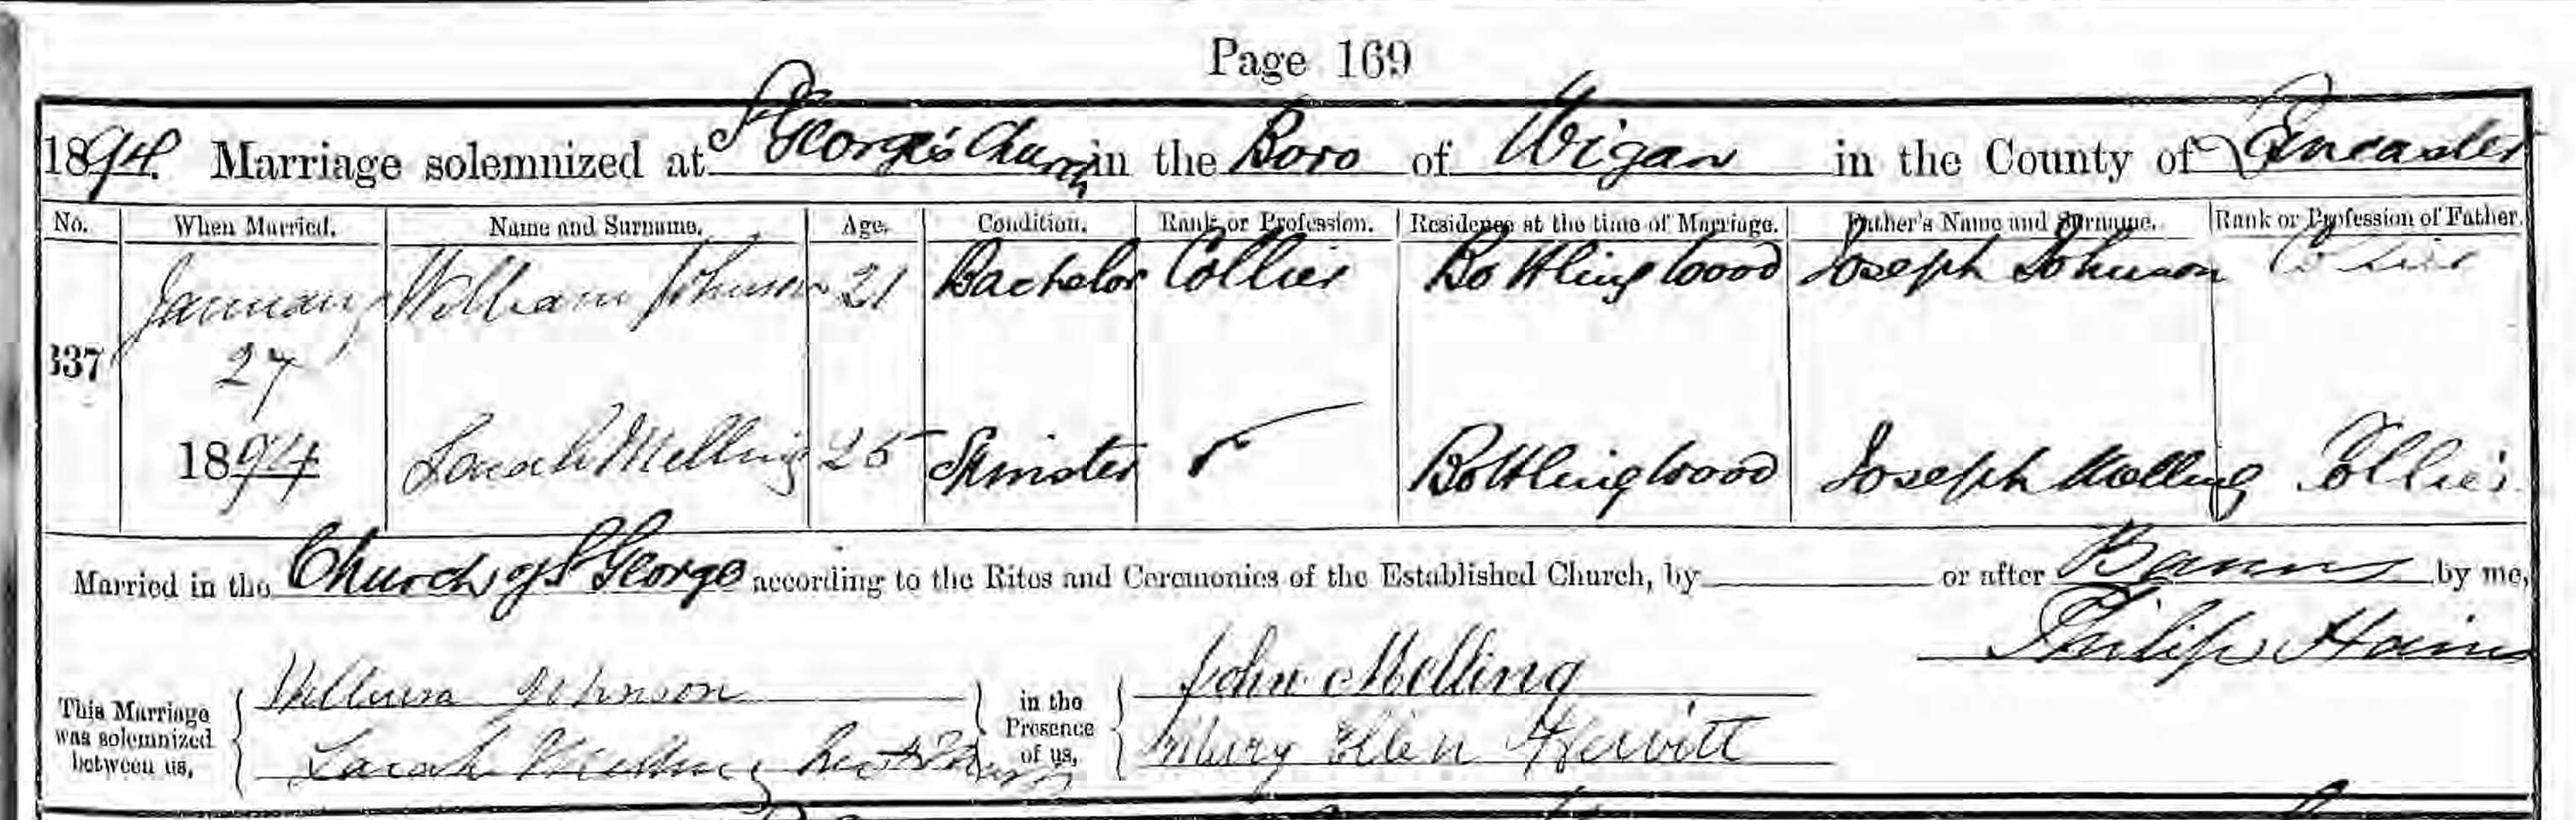 Page 169
1894. Marriage solemnized at St George's Church in the Boro of Wigan in the County of Lancaster
No. When Married. Name and Surname. Age. Condition. Rank or Profession. Residence at the time of Marriage. Father's Name and Surname. Rank or Profession of Father.
January William Johnson 21 Bachelor Collier Bottlingwood Joseph Johnson Collier
337 27
1894 Sarah Melling 25 Spinster Bottlingwood Joseph Melling Collier
Married in the Church of St George according to the Rites and Ceremonies of the Established Church, by or after Banns by me,
Philip Hains
This Marriage was solemnized between us, William Johnson in the Presence of us, John Melling
Sarah Melling her Mary Ellen Hewitt